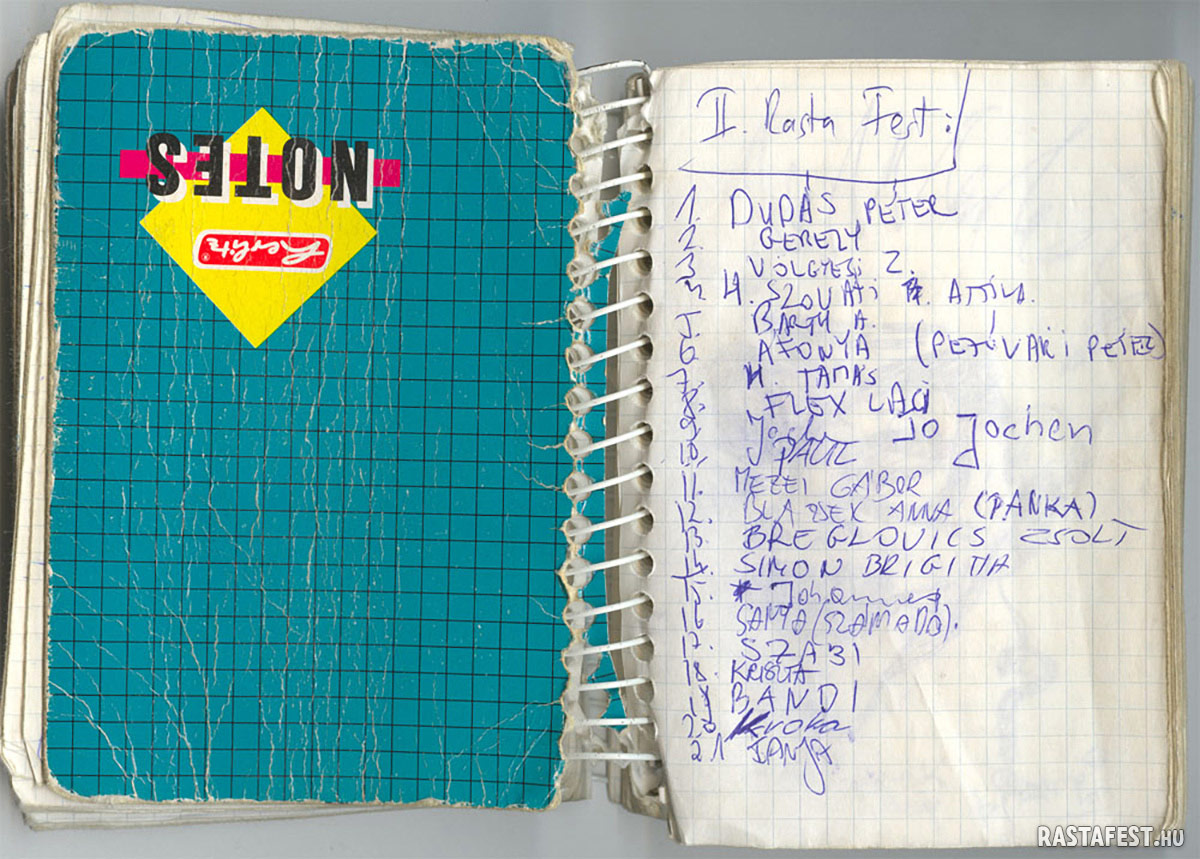 NOTES
herlitz
II. Rasta Fest:
1. DUDÁS PÉTER
2. GEREZY
3. VÖLGYESI Z.
4. H. SZOVÁTI ATTILA.
5. BARTY A.
6. ÁFONYA (PETŐVÁRI PÉTER)
7. H. TAMÁS
8. FLEX LACI
9. Jo Jochen
10. PAUL
11. MEZEI GÁBOR
12. ANNA (PANKA)
13. BREGLOVICS ZSOLT
14. SIMON BRIGITTA
15. Johannes
16. SANYA
17. SZABI
18. KRISTA
19 BANDI
20 Kroka
21 TANJA
RASTAFEST.HU